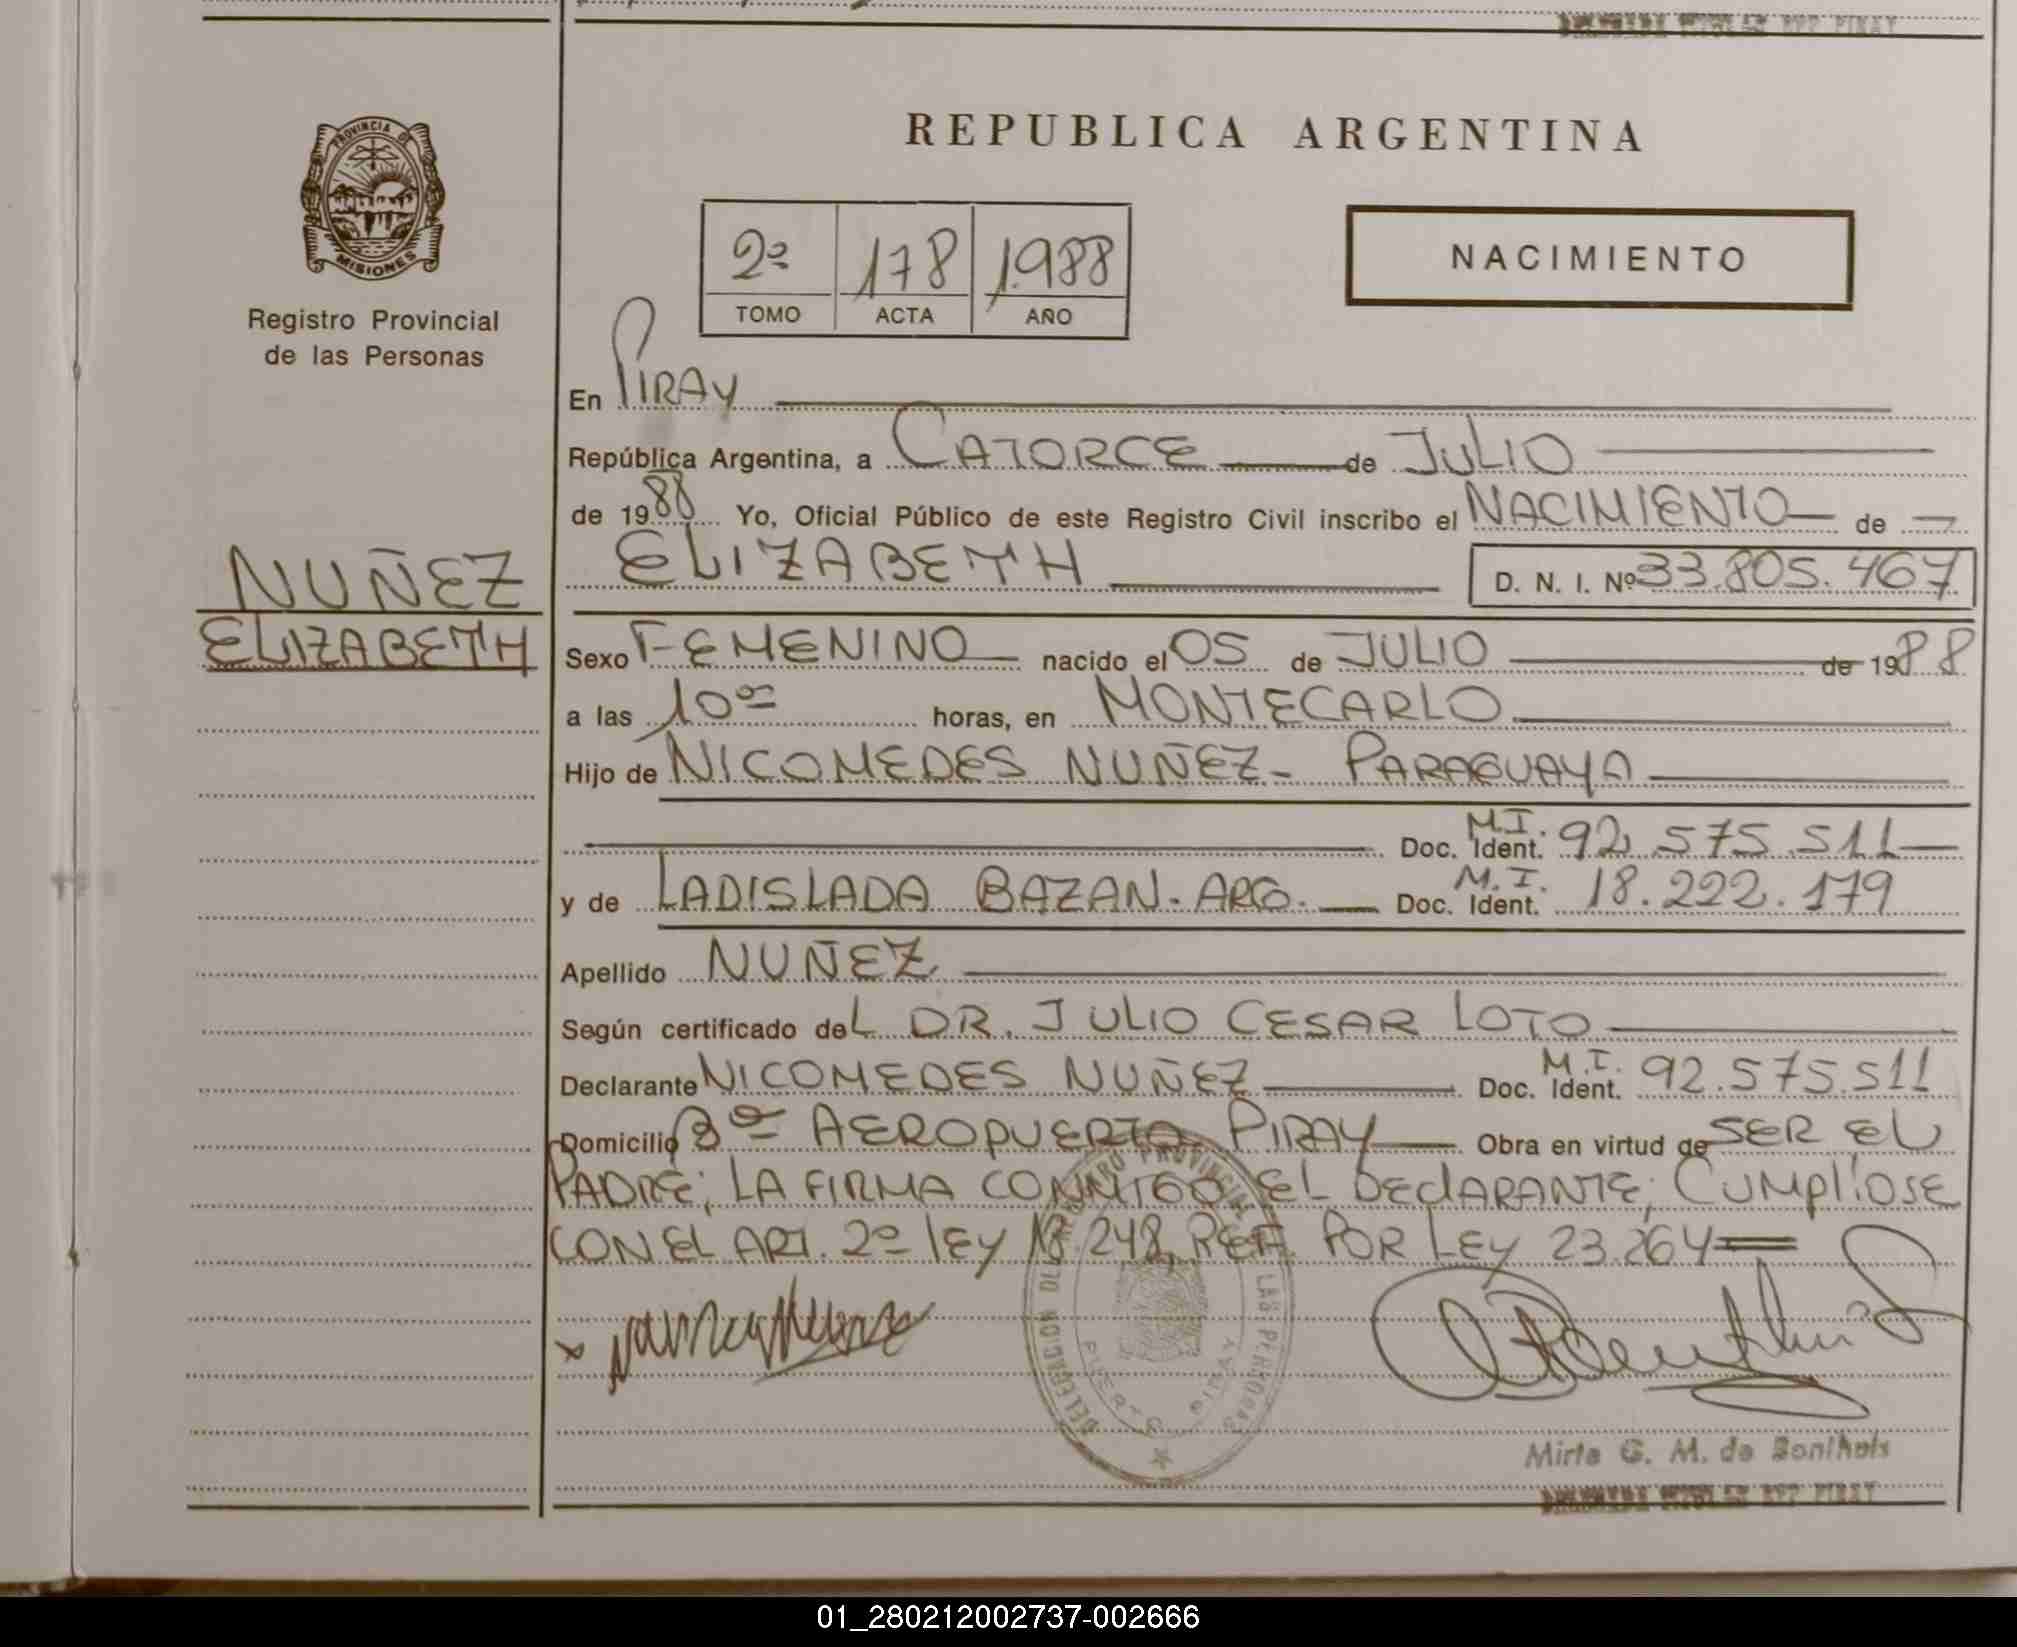 REPUBLICA ARGENTINA
PROVINCIA DE
MISIONES
Registro Provincial
de las Personas
2º 178 1.988
TOMO ACTA AÑO
NACIMIENTO
En PIRAY
República Argentina, a CATORCE de JULIO
de 1988 Yo, Oficial Público de este Registro Civil inscribo el NACIMIENTO de
NUÑEZ
ELIZABETH
ELIZABETH D. N. I. Nº 33.805.467
Sexo FEMENINO nacido el 05 de JULIO de 1988
a las 10ºº horas, en MONTECARLO
Hijo de NICOMEDES NUÑEZ- PARAGUAYA
M.I.
Doc. Ident. 92.575.511
M.I.
y de LADISLADA BAZAN. ARG. Doc. Ident. 18.222.179
Apellido NUÑEZ
Según certificado deL DR. JULIO CESAR LOTO
M.I.
Declarante NICOMEDES NUÑEZ Doc. Ident. 92.575.511
Domicilio Bº AEROPUERTO PIRAY Obra en virtud de SER EL
PADRE; LA FIRMA CONMIGO EL DECLARANTE; CUMPLIOSE
CON EL ART. 2º LEY 18.248, REF. POR LEY 23.264
DELEGACION DEL REGISTRO PROVINCIAL DE LAS PERSONAS
PUERTO PIRAY
Mirta G. M. de
01_280212002737-002666